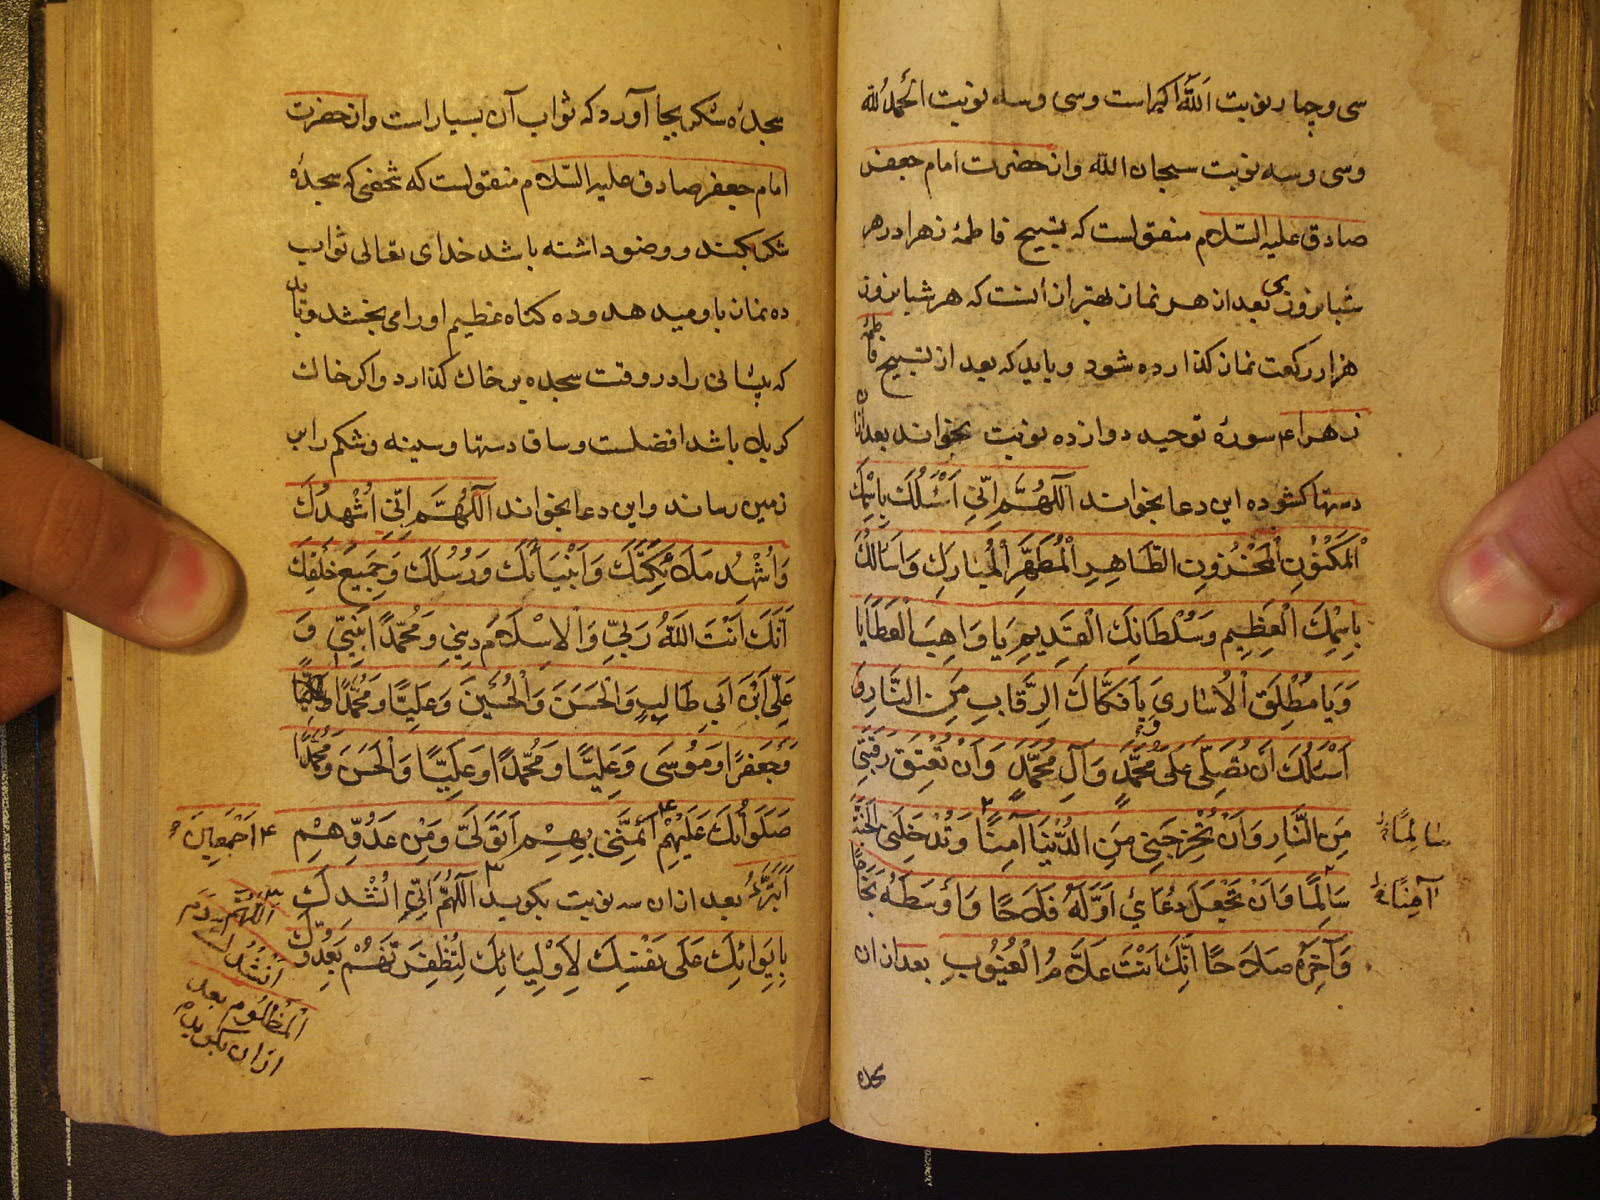 سی و چهار نوبت اَللّٰهُ اکبر است وسی وسه نوبت الحَمْدُ لله
وسی وسه نوبت سبحان الله واز حضرت امام جعفر
صادق علیه السّلام منقولست که تسبیح فاطمهٔ زهرا در هر
شبانروزی بعد از هر نماز بهتر از انست که هر شبانروز
هزار رکعت نماز کذارده شود و باید که بعد از تسبیح فاطمهٔ
زهرا ع سورهٔ توحید دوازده نوبت بخواند بعد ازان
دستها کشوده این دعا بخواند اَللّٰهُمَّ اِنّی اَسْئَلُكَ بِاسْمِكَ
الْمَكْنُوْنِ الْمَخْزُونِ الطَّاهِرِ الْمُطَهَّرِ الْمُبارَكِ وَاَسْأَلُكَ
بِاسْمِكَ الْعَظِیمِ وَسُلْطَانِكَ الْقَدِیمِ یَا وَاهِبَ الْعَطَایَا
وَیَا مُطْلِقَ الْاُسَارٰی وَیَا فَكَّاكَ الرِّقَابِ مِنَ النَّارِ
اَسْئَلُكَ اَنْ تُصَلِّیَ عَلَی مُحَمَّدٍ وَآلِ مُحَمَّدٍ وَاَنْ تُعْتِقَ رَقَبَتِی
مِنَ النَّارِ وَاَنْ تُخْرِجَنِی مِنَ الدُّنْیَا آمِنًا وَتُدْخِلَنِی الْجَنَّةَ
سَالِمًا وَاَنْ تَجْعَلَ دُعَائِی اَوَّلَهُ فَلَاحًا وَاَوْسَطَهُ نَجَاحًا
وَآخِرَهُ صَلَاحًا اِنَّكَ اَنْتَ عَلَّامُ الْغُیُوبِ بعد ازان
سَالِمًا
آمِنًا
سجده
سجدهٔ شکر بجا آورد که ثواب آن بسیار است واز حضرت
امام جعفر صادق علیه السّلام منقولست که شخصی که سجدهٔ
شکر بکند و وضو داشته باشد خدای تعالی ثواب
ده نماز باو میدهد و ده کناه عظیم او را می بخشد و باید
که پیشانی را در وقت سجده بر خاك کذارد و اکر خاك
کربلا باشد افضلست وساق دستها وسینه وشکم را بر
زمین رساند واین دعا بخواند اَللّٰهُمَّ اِنِّی اُشْهِدُكَ
وَاُشْهِدُ مَلَائِكَتَكَ وَاَنْبِیَائَكَ وَرُسُلَكَ وَجَمِیعَ خَلْقِكَ
اَنَّكَ اَنْتَ اللّٰهُ رَبِّی وَالْاِسْلَامُ دِینِی وَمُحَمَّدًا نَبِیِّی وَ
عَلِیَّ ابْنَ اَبِی طَالِبٍ وَالْحَسَنَ وَالْحُسَیْنَ وَعَلِیًّا وَمُحَمَّدًا
وَجَعْفَرًا وَمُوسَی وَعَلِیًّا وَمُحَمَّدًا وَعَلِیًّا وَالْحَسَنَ وَمُحَمَّدًا
صَلَوَاتُكَ عَلَیْهِمْ اَئِمَّتِی بِهِمْ اَتَوَلَّی وَمِنْ عَدُوِّهِمْ
اَتَبَرَّءُ بعد ازان سه نوبت بکوید اَللّٰهُمَّ اِنِّی اَنْشُدُكَ
بِاِیوَائِكَ عَلَی نَفْسِكَ لِاَوْلِیَائِكَ لِتُظْفِرَنَّهُمْ بِعَدُوِّكَ
اَجْمَعِینَ
اَللّٰهُمَّ
اَنْشُدُكَ دَمَ
الْمَظْلُومِ بعد
ازان بکوید